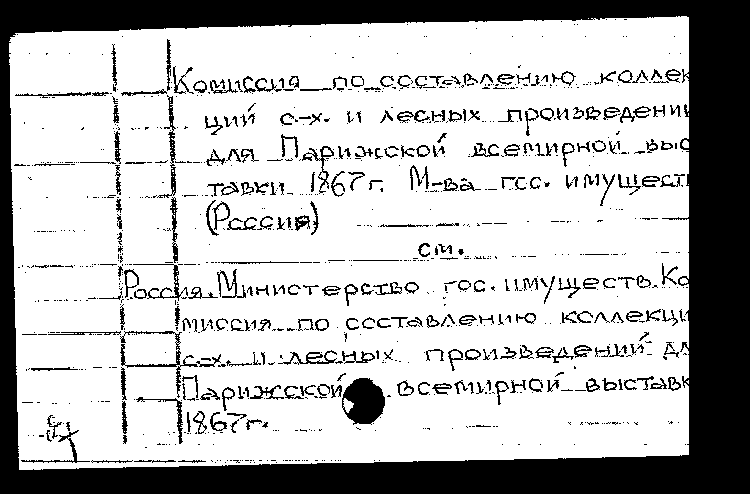 Комиссия по составлению коллек
ций с-х. и лесных произведени
для Парижской всемирной выс
тавки 1867г. М-ва гос. имуществ
(Россия)
см.
Россия. Министерство гос. имуществ. Ко
миссия по составлению коллекци
с-х. и лесных произведений дл
Парижской всемирной выставк
1867г.